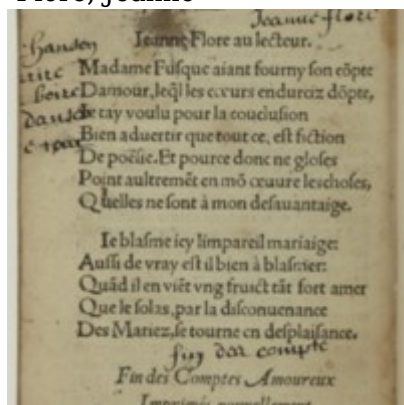 Flore, Jeanne
Jeanne flore
Ieanne Flore au lecteur.
chanson
Madame Fusque aiant fourny son cõpte
boire
Damour, leq̃l les cœurs endurciz dõpte,
danser
Ie tay voulu pour la conclusion
Bien aduertir que tout ce, est fiction
De poësie. Et pource donc ne gloses
Point aultremẽt en mõ œuure les choses,
Quelles ne sont à mon desauantaige.
Ie blasme icy limpareil mariaige:
Aussi de vray est il bien à blasmer:
Quãd il en viẽt vng fruict tãt fort amer
Que le solas, par la disconuenance
Des Mariez, se tourne en desplaisance.
compte
Fin des Comptes Amoureux
Imprimés nouuellement